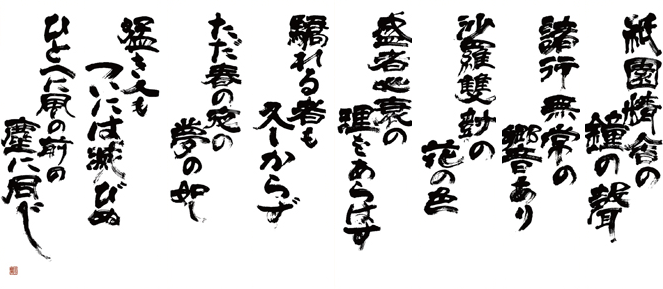 祇園精舎の
鐘の聲
諸行無常の
響あり
沙羅雙樹の
花の色
盛者必衰の
理をあらはす
驕れる者も
久しからず
ただ春の夜の
夢の如し
猛き人も
ついには滅びぬ
ひとへに風の前の
塵に同じ